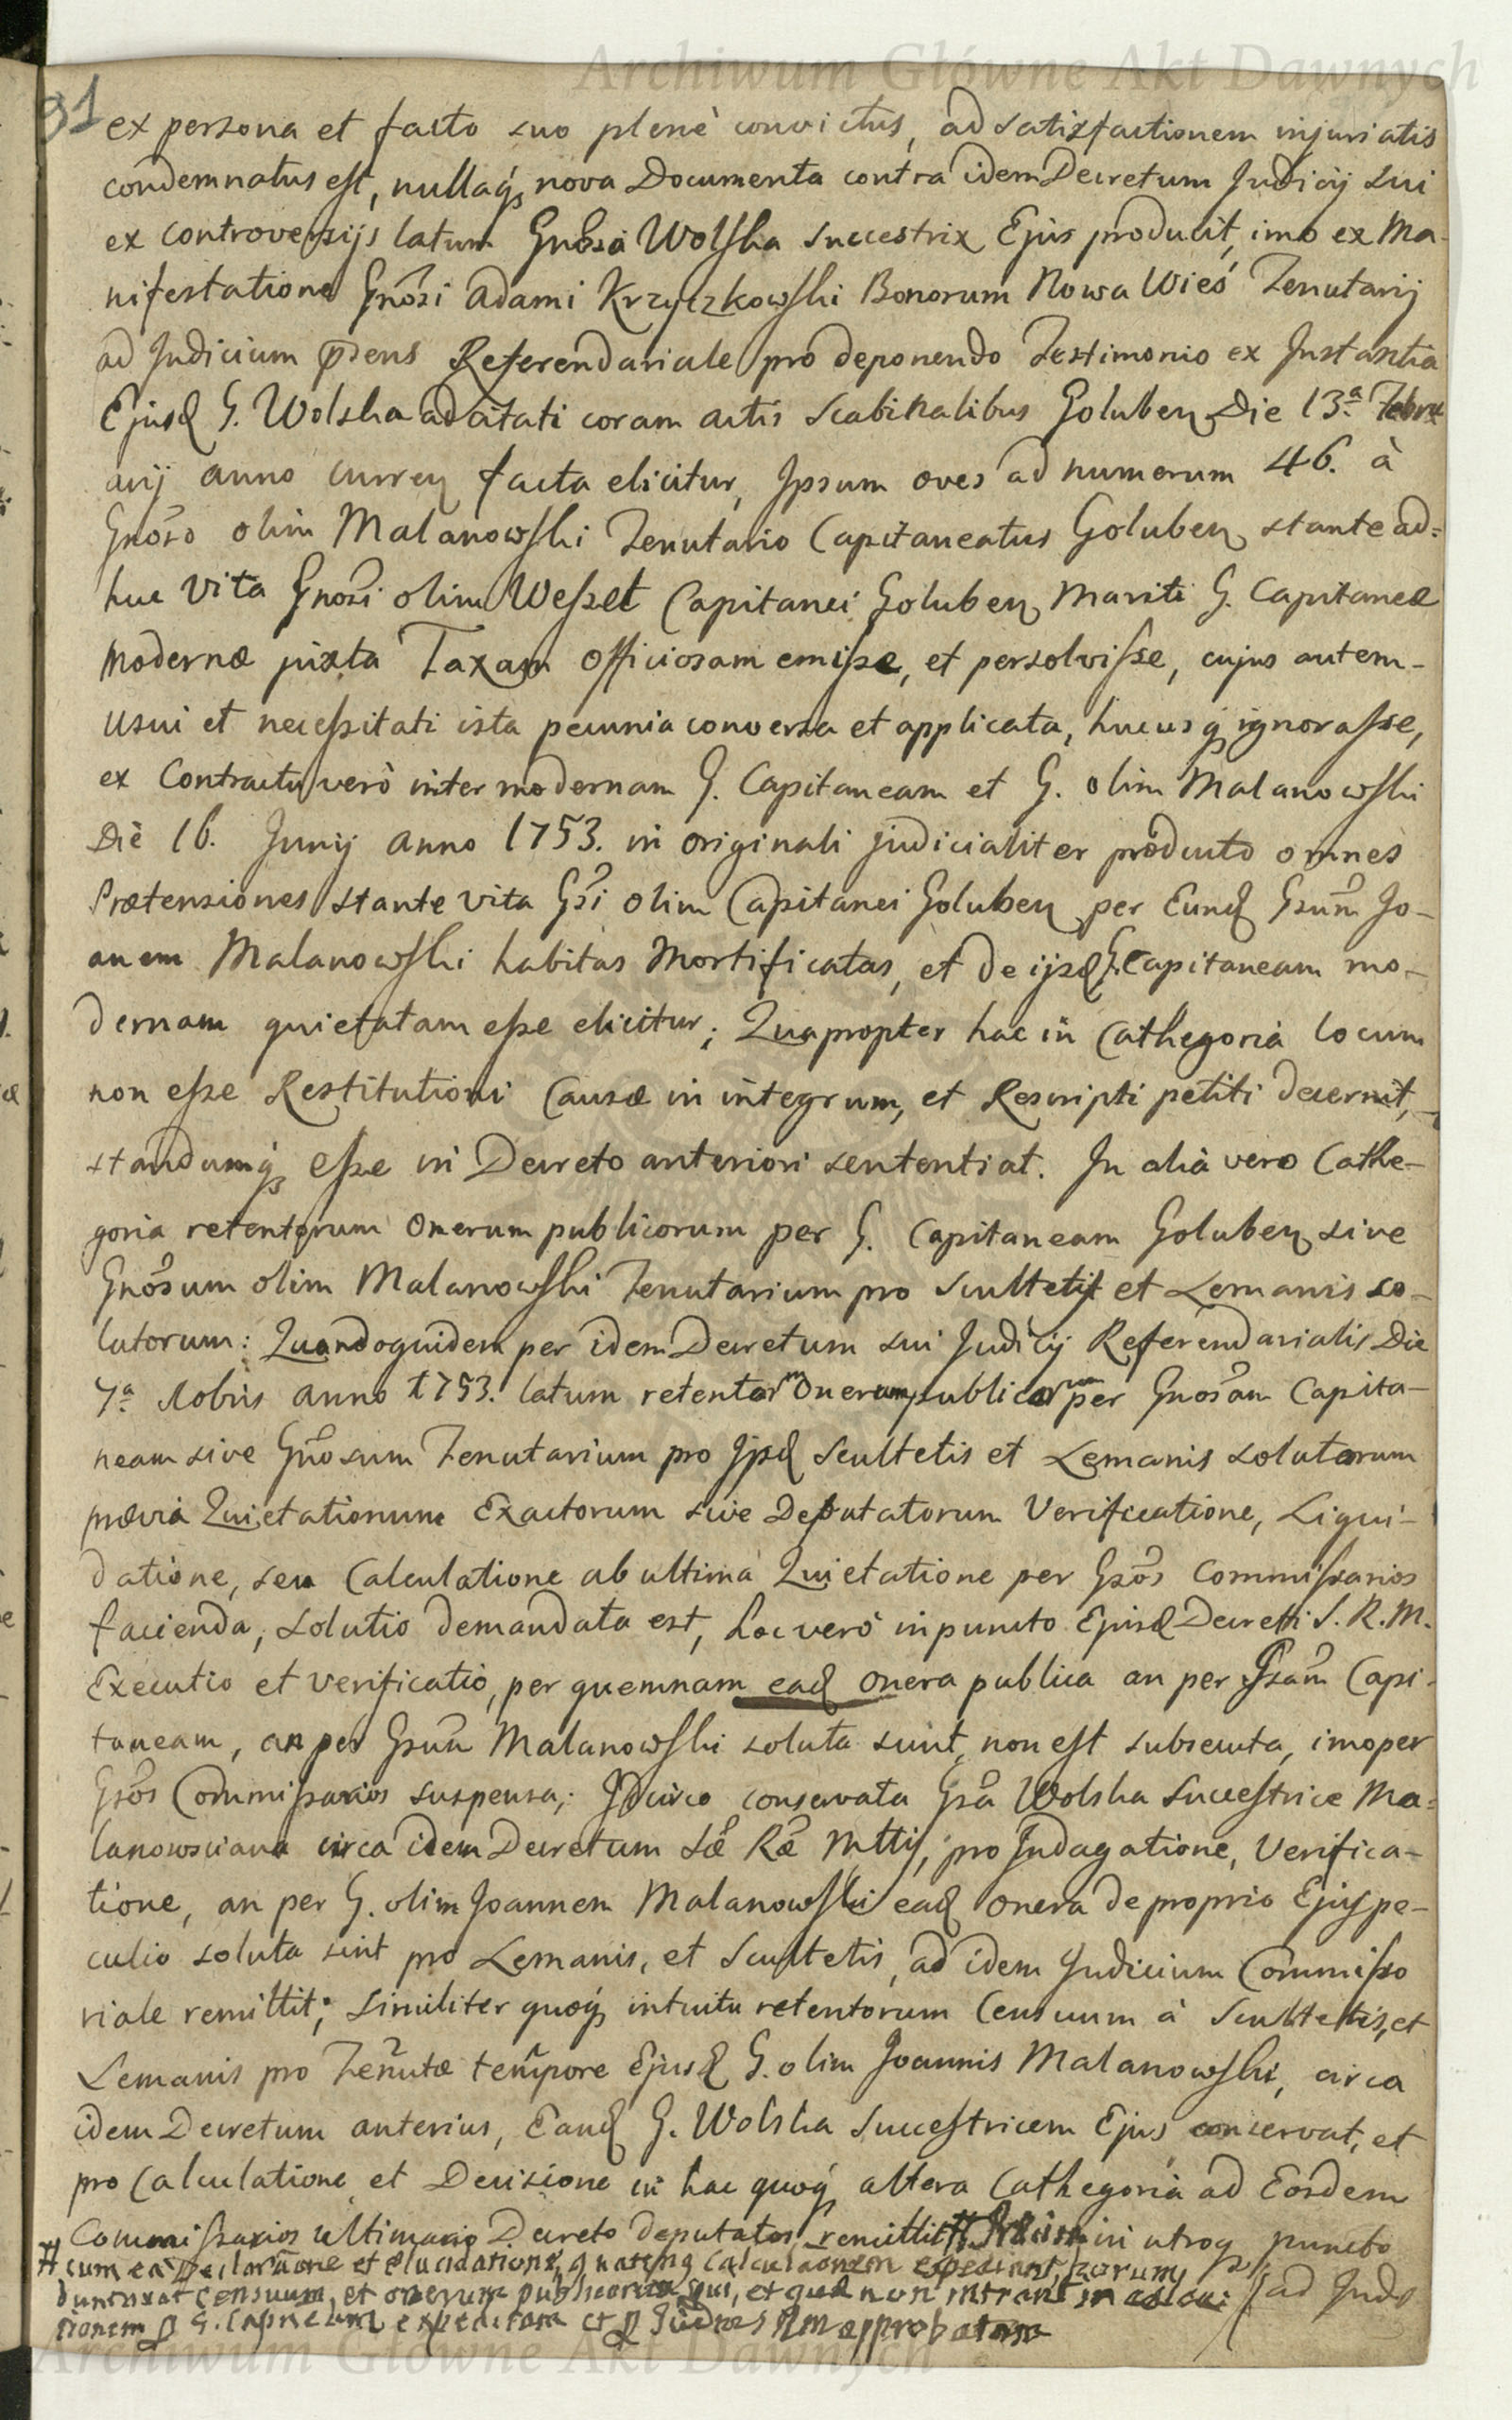 Archiwum Główne Akt Dawnych
91
ex persona et facto suo plenè convictus, ad satisfactionem injuriatis
condemnatus est, nullaq́ʒ nova Documenta contra idem Decretum Judicij sui
ex controversijs latum Gnosa Wolska Succestrix Ejus producit, imo ex Ma-
nifestatione Gnosi Adami Krzyczkowski Bonorum Nowa Wieś Tenutarij
ad Judicium pñens Referendariale pro deponendo Testimonio ex Instantia
Ejusd G. Wolska adcitati coram actis Scabinalibus Goluben Die 13.ª Febru
arij anno curren facta elicitur, Ipsum oves ad numerum 46. à
Gnoso olim Malanowski Tenutario Capitaneatus Goluben stante ad=
huc vita Gnosi olim Wessel Capitanei Goluben Mariti G. Capitaneæ
modernæ juxta Taxam officiosam emisse, et persolvisse, cujus autem-
usui et necessitati ista pecunia conversa et applicata, hucusq́ ignorasse,
ex Contractu verò inter modernam G. Capitaneam et G. olim Malanowski
Diè 16. Junij anno 1753. in originali judicialiter producto omnes
Prætensiones stante vita Gsi olim Capitanei Goluben per Eund Gsum Jo-
anem Malanowski habitas Mortificatas, et de ijsd G. Capitaneam mo-
dernam quietatam esse elicitur; Quapropter hac in Cathegoria locum
non esse Restitutioni Causæ in integrum, et Rescripti petiti decernit,-
standumq́ʒ esse in Decreto anteriori sententiat. In alia vero Cathe-
goria retentorum Onerum publicorum per G. Capitaneam Goluben sive
Gnosum olim Malanowski Tenutarium pro Scultetis et Lemanis so-
lutorum: Quandoquidem per idem Decretum sui Judicij Referendarialis Die
7.ª Nobris anno 1753. latum retentorum Onerum publicorum per Gnosam Capita-
neam sive Gnosum Tenutarium pro Ipsd Scultetis et Lemanis solutorum
prævia Quietationum Exactorum sive Deputatorum Verificatione, Liqui-
datione, seu Calculatione ab ultima Quietatione per Gsos Commissarios
facienda, solutio demandata est, hoc verò in puncto Ejusd Decreti S. R. M.
Executio et verificatio, per quemnam ead onera publica an per Gsam Capi-
taneam, an per Gsum Malanowski soluta sunt, non est subsecuta, imo per
Gsos Commissarios suspensa; Idcirco conservata Gsa Wolska Succestrice Ma=
lanowsciana circa idem Decretum Sæ Ræ Mttis, pro Indagatione, Verifica-
tione, an per G. olim Joannem Malanowski ead onera de proprio Ejus pe-
culio soluta sint pro Lemanis, et Scultetis, ad idem Judicium Commisso
riale remittit; similiter quoq́ intuitu retentorum Censuum à Scultetis, et
Lemanis pro Tenutæ tempore Ejusd G. olim Joannis Malanowski, circa
idem Decretum anterius, Eand G. Wolska Succestricem Ejus conservat, et
pro Calculatione et Decisione in hac quoq́ altera Cathegoria ad Eosdem
Commissarios ultimario Decreto deputatos remittit # in utroq puncto
# cum ea Declaraõne et elucidatione, quatenq calculaõnem expediant, horum
duntaxat censuum, et onerum publicorum qui, et quæ non intrant in
tionem p G. Capneam expeditam et p Judices approbatam
ad Judi
Archiwum Główne Akt Dawnych